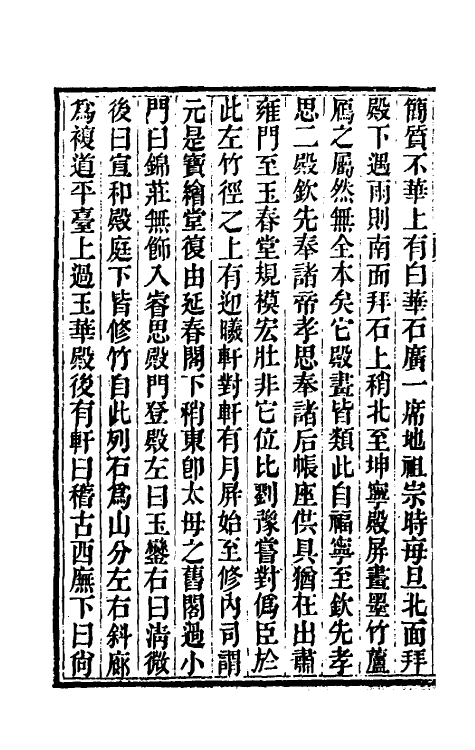 簡質不華上有白華石廣一席地祖宗時每旦北面拜
殿下遇雨則南面拜石上稍北至坤寧殿屏畫墨竹蘆
鴈之屬然無全本矣它殿畫皆類此自福寧至欽先孝
思二殿欽先奉諸帝孝思奉諸后帳座供具猶在出肅
雍門至玉春堂規模宏壯非它位比劉豫嘗對僞臣於
此左竹徑之上有迎曦軒對軒有月屏始至修內司謂
元是寶繪堂復由延春閣下稍東卽太母之舊閣過小
門曰錦莊無飾入睿思殿門登殿左曰玉鑾右曰淸微
後曰宣和殿庭下皆修竹自此列石爲山分左右斜廊
爲複道平臺上過玉華殿後有軒曰稽古西廡下曰尙